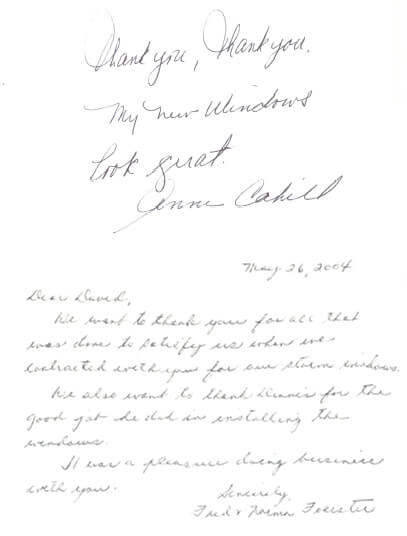 Thank you, Thank you.
My new Windows
look great.
Anne Cahill
May 26, 2004
Dear David,
We want to thank you for all that
was done to satisfy us when we
contracted with you for our storm windows.
We also want to thank Dennis for the
good job he did in installing the
windows.
It was a pleasure doing business
with you.
Sincerely,
Fred & Norma Foerster